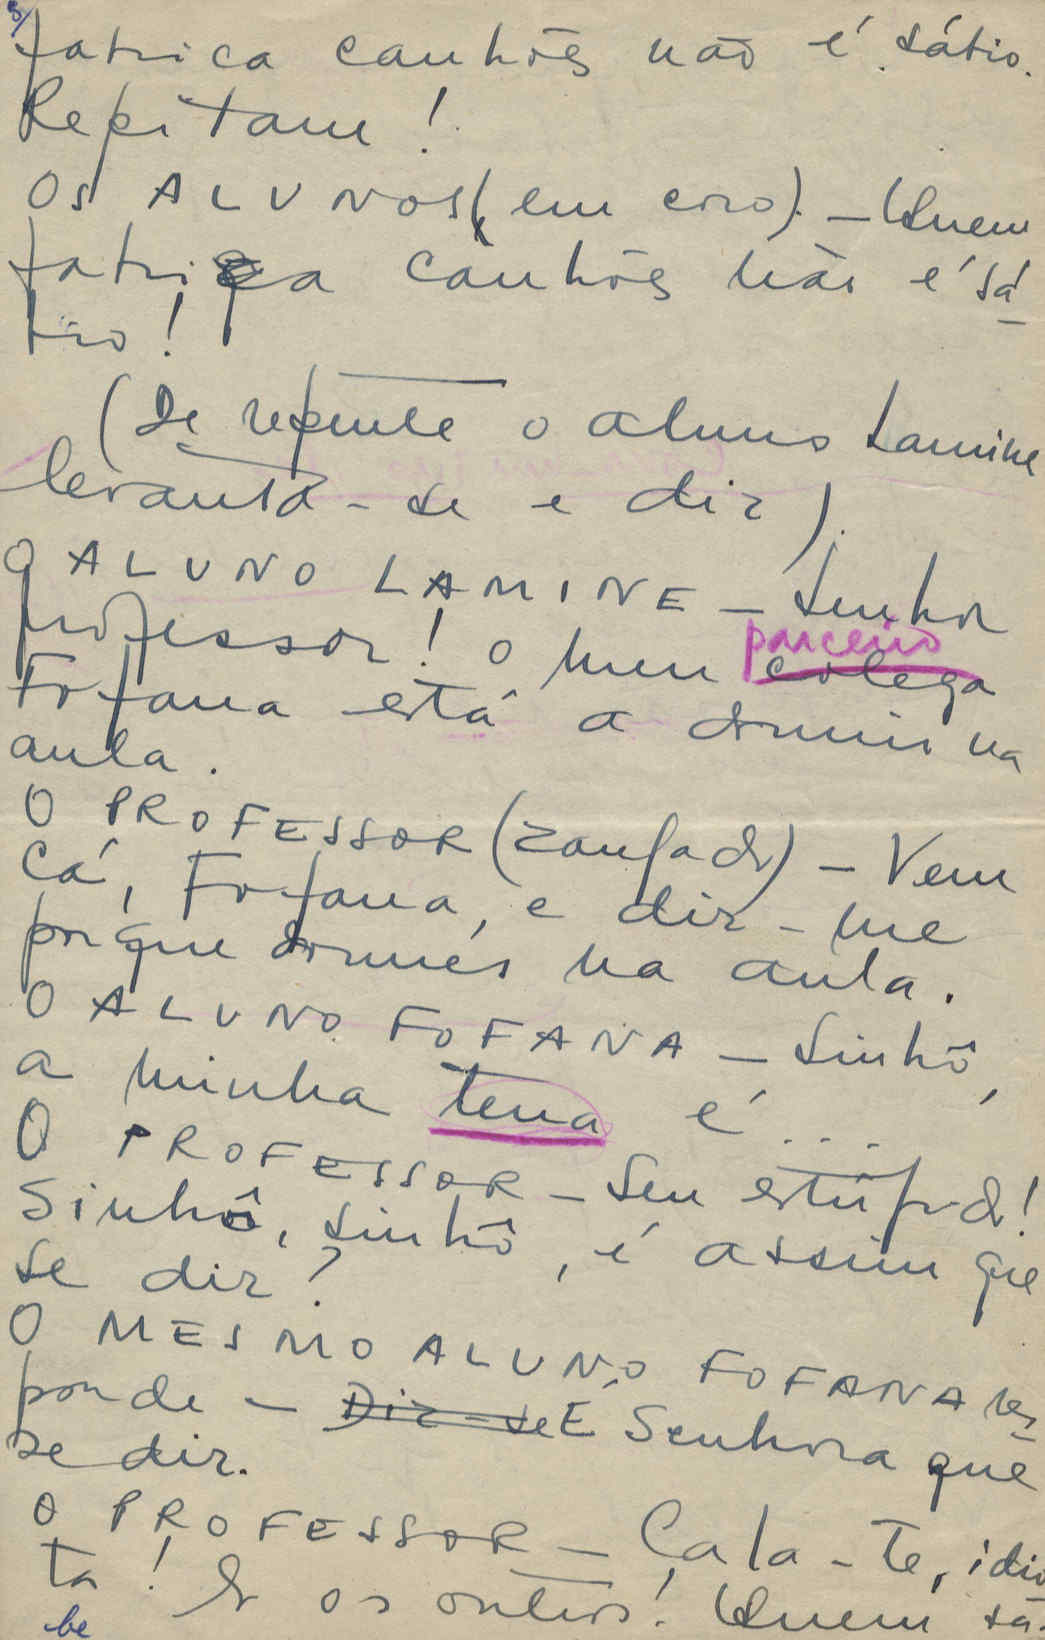 5/
fabrica canhões não é sábio.
Repitam!
OS ALUNOS (em coro). – Quem
fabrica canhões não é sá-
bio!
(De repente o aluno Lamine
levanta-se e diz).
O ALUNO LAMINE – Senhor
professor! O meu colega
parceiro
Fofana está a dormir na
aula.
O PROFESSOR (zangado) – Vem
cá, Fofana, e diz-me
porque dormes na aula.
O ALUNO FOFANA – Sinhô,
a minha terra é...
O PROFESSOR – Seu estúpido!
Sinhô, sinhô, é assim que
se diz?
O MESMO ALUNO FOFANA res-
ponde – Diz-se É Senhora que
se diz.
O PROFESSOR – Cala-te, idio
ta! E os outros! Quem sa-
be